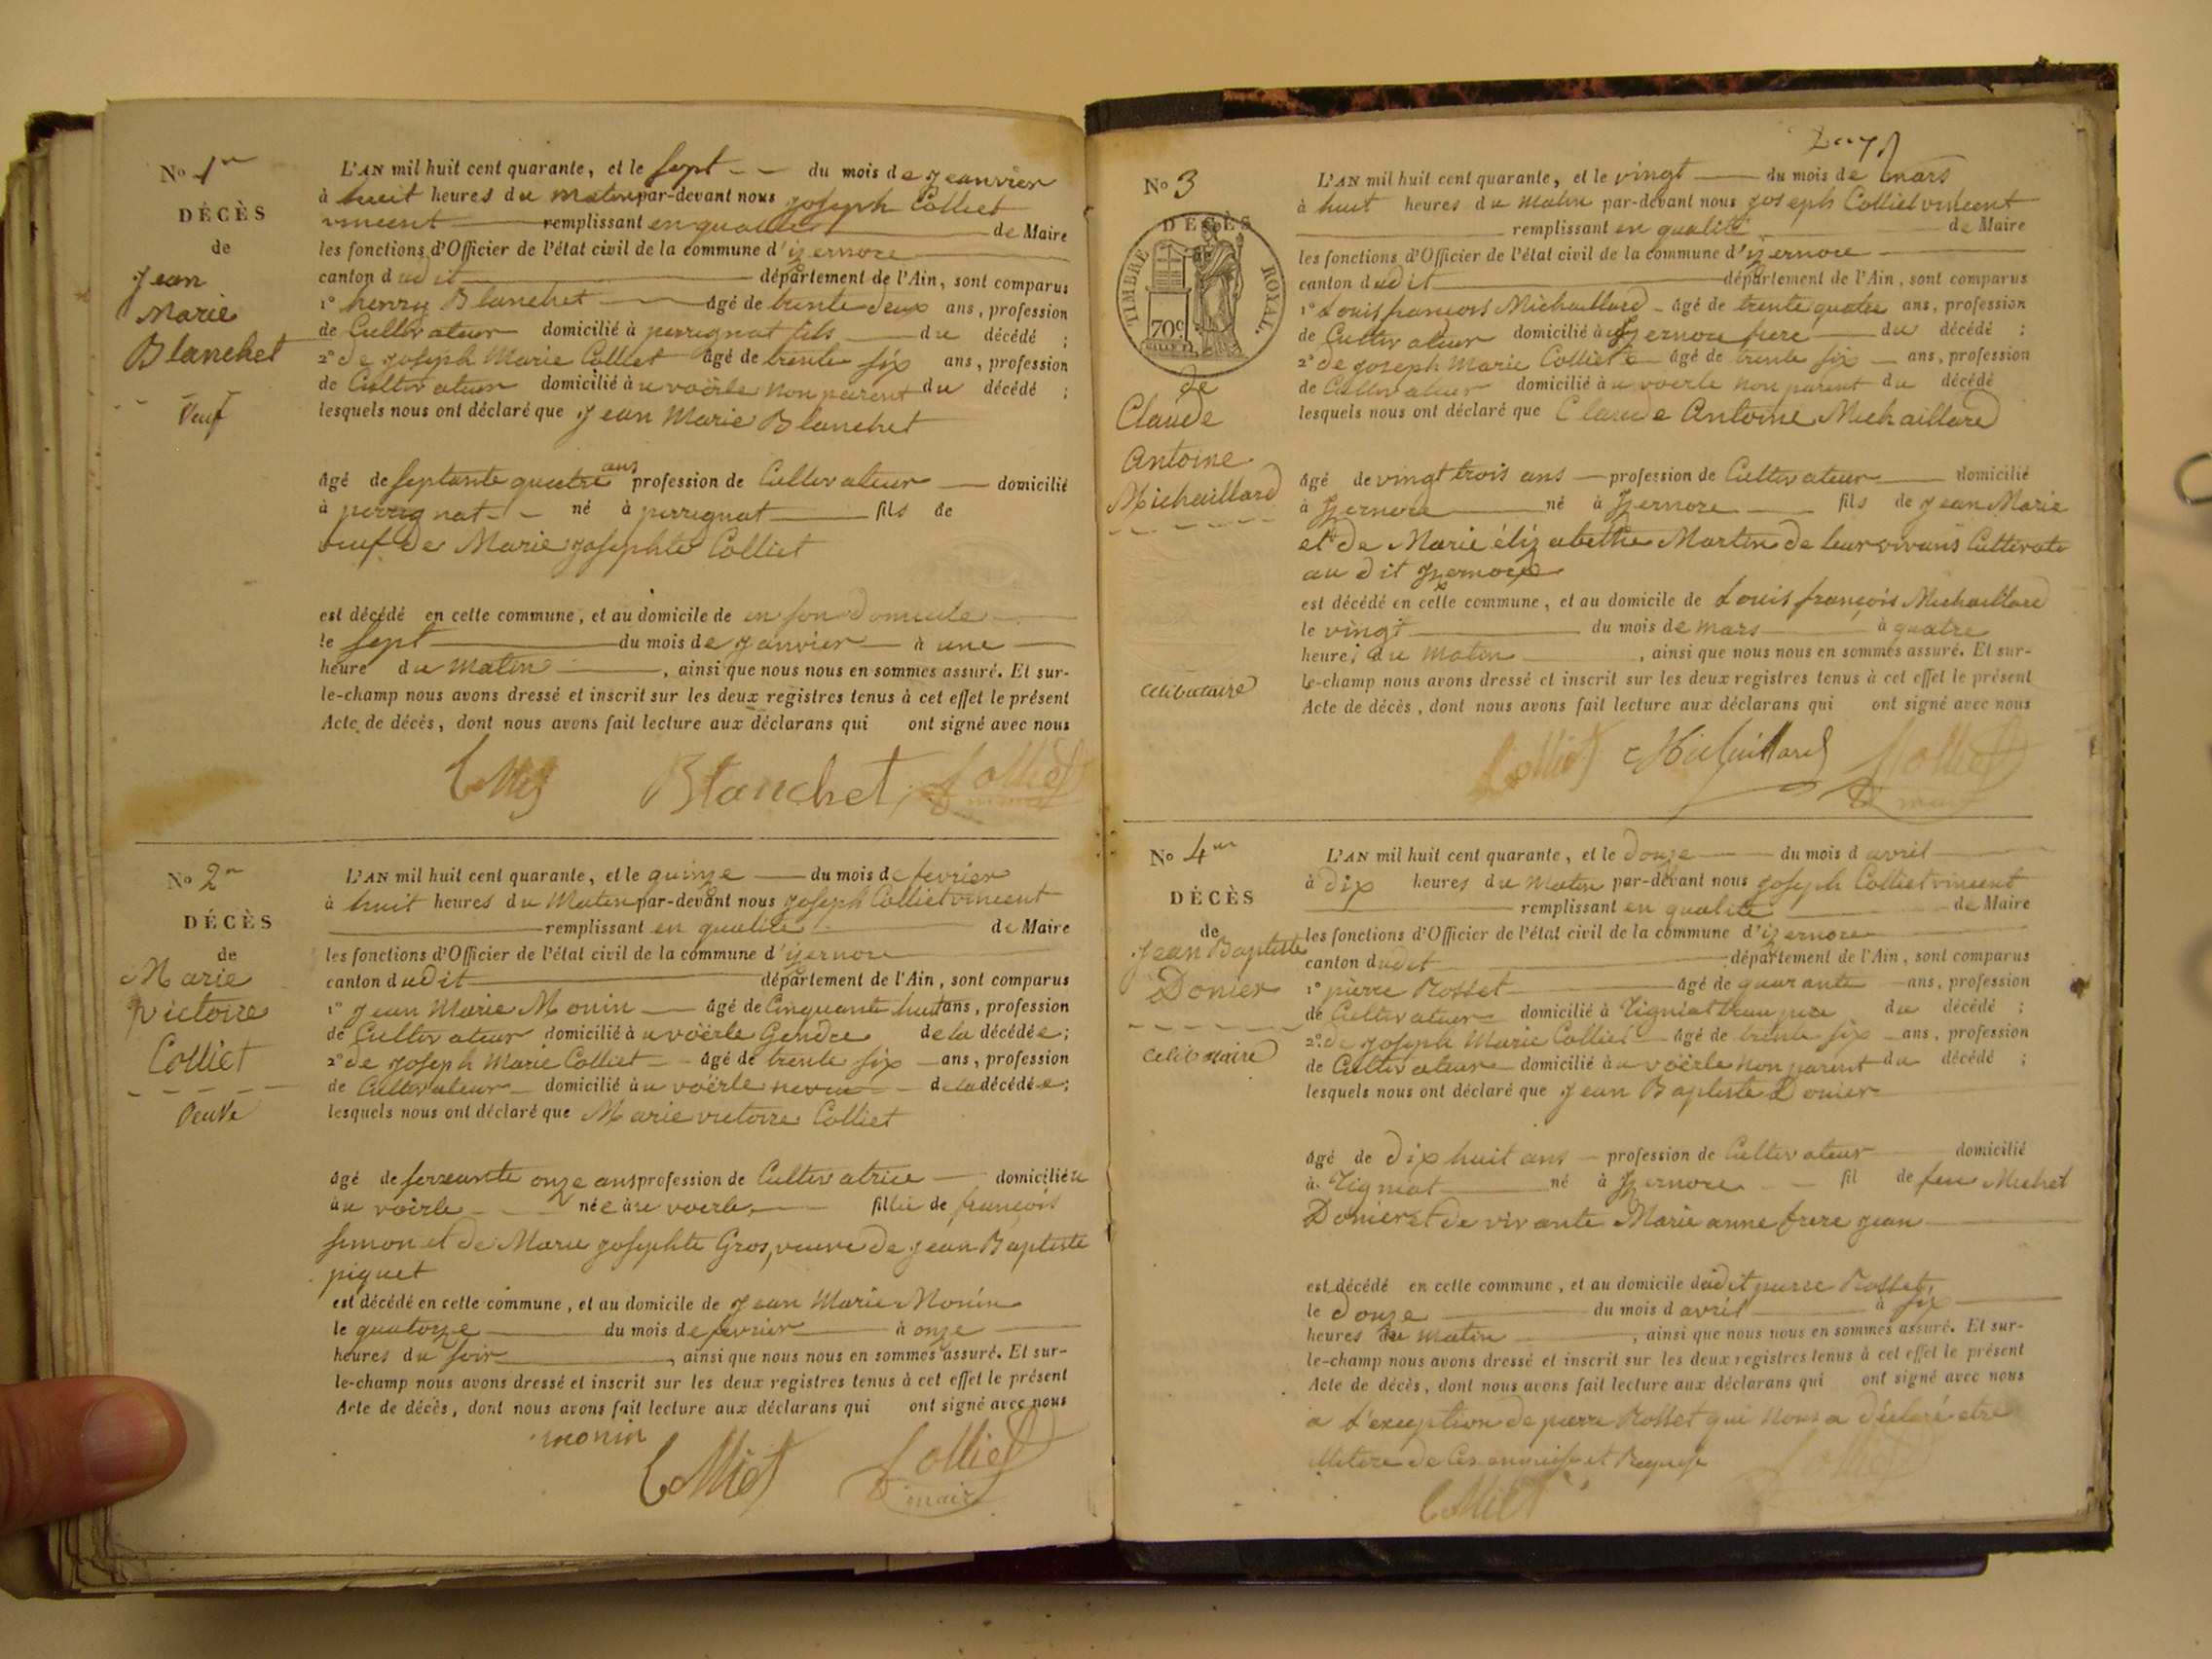 No 1er
DÉCÈS
de
Jean
Marie
Blanchet
veuf
L'AN mil huit cent quarante, et le sept du mois de jeanvier
à huit heures du matin par-devant nous joseph Colliet
vincent remplissant en qualité de Maire
les fonctions d'Officier de l'état civil de la commune d'izernore
canton dudit département de l'Ain, sont comparus
1° henry Blanchet âgé de trente deux ans, profession
de Cultivateur domicilié à perrignat fils du décédé ;
2° de joseph Marie Colliet âgé de trente six ans, profession
de Cultivateur domicilié au voërle non parent du décédé ;
lesquels nous ont déclaré que jean Marie Blanchet
âgé de septante quatre ans profession de Cultivateur domicilié
à perrignat né à perrignat fils de
veuf de Marie josephte Colliet
est décédé en cette commune, et au domicile de en son domicile
le sept du mois de janvier à une
heure du matin, ainsi que nous nous en sommes assuré. Et sur-
le-champ nous avons dressé et inscrit sur les deux registres tenus à cet effet le présent
Acte de décès, dont nous avons fait lecture aux déclarans qui ont signé avec nous
Colliet Blanchet Colliet
maire
No 2e
DÉCÈS
de
Marie
victoire
Colliet
veuve
L'AN mil huit cent quarante, et le quinze du mois de fevrier
à huit heures du Matin par-devant nous joseph Colliet vincent
remplissant en qualité de Maire
les fonctions d'Officier de l'état civil de la commune d'izernore
canton dudit département de l'Ain, sont comparus
1° jean Marie Monin âgé de Cinquante huit ans, profession
de Cultivateur domicilié au voërle Gendre de la décédée ;
2° de joseph Marie Colliet âgé de trente six ans, profession
de Cultivateur domicilié au voërle neveu de la décédée ;
lesquels nous ont déclaré que Marie victoire Colliet
âgé de soixante onze ans profession de Cultivatrice domiciliée
au voërle née au voerle fille de françois
simon et de Marie josephte Gros, veuve de jean Baptiste
piquet
est décédé en cette commune, et au domicile de jean Marie Monin
le quatorze du mois de fevrier à onze
heures du soir, ainsi que nous nous en sommes assuré. Et sur-
le-champ nous avons dressé et inscrit sur les deux registres tenus à cet effet le présent
Acte de décès, dont nous avons fait lecture aux déclarans qui ont signé avec nous
monin Colliet Colliet
maire
No 3
DÉCÈS
TIMBRE ROYAL.
70c
de
Claude
Antoine
Michaillard
celibataire
L'AN mil huit cent quarante, et le vingt du mois de mars
à huit heures du matin par-devant nous joseph Colliet vincent
remplissant en qualité de Maire
les fonctions d'Officier de l'état civil de la commune d'izernore
canton dudit département de l'Ain, sont comparus
1° Louis françois Michaillard âgé de trente quatre ans, profession
de Cultivateur domicilié à izernore frere du décédé ;
2° de joseph Marie Colliet âgé de trente six ans, profession
de Cultivateur domicilié au voerle non parent du décédé
lesquels nous ont déclaré que Claude Antoine Michaillard
âgé de vingt trois ans profession de Cultivateur domicilié
à Izernore né à Izernore fils de jean Marie
et de Marie élizabethe Martin de leur vivans Cultivate
au dit Izernore
est décédé en cette commune, et au domicile de Louis françois Michaillard
le vingt du mois de mars à quatre
heures du matin, ainsi que nous nous en sommes assuré. Et sur-
le-champ nous avons dressé et inscrit sur les deux registres tenus à cet effet le présent
Acte de décès, dont nous avons fait lecture aux déclarans qui ont signé avec nous
Colliet Michaillard Colliet
maire
No 4me
DÉCÈS
de
Jean Baptiste
Donier
celibataire
L'AN mil huit cent quarante, et le douze du mois d'avril
à dix heures du matin par-devant nous joseph Colliet vincent
remplissant en qualité de Maire
les fonctions d'Officier de l'état civil de la commune d'izernore
canton dudit département de l'Ain, sont comparus
1° pierre Rosset âgé de quarante ans, profession
de Cultivateur domicilié à Tigniat beau pere du décédé ;
2° de joseph Marie Colliet âgé de trente six ans, profession
de Cultivateur domicilié au voërle non parent du décédé ;
lesquels nous ont déclaré que jean Baptiste Donier
âgé de dix huit ans profession de Cultivateur domicilié
à Tigniat né à Izernore fil de feu Michel
Donier et de vivante Marie anne frere jean
est décédé en cette commune, et au domicile dudit pierre Rosset,
le douze du mois d'avril à six
heures du matin, ainsi que nous nous en sommes assuré. Et sur-
le-champ nous avons dressé et inscrit sur les deux registres tenus à cet effet le présent
Acte de décès, dont nous avons fait lecture aux déclarans qui ont signé avec nous
a l'exception de pierre Rosset qui nous a déclaré etre
illitéré de ce enquis et Requis
Colliet Colliet